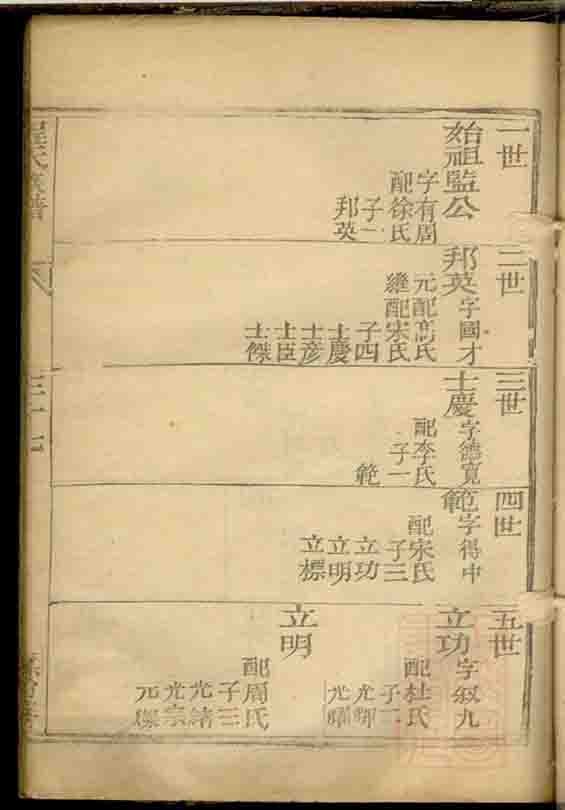 一世
始祖監公
字有周
配徐氏
子一
邦英
二世
邦英 字國才
元配高氏
繼配宋氏
子四
士慶
士彥
士臣
士傑
三世
士慶 字德寬
配李氏
子一
範
四世
範 字得中
配宋氏
子三
立功
立明
立標
五世
立功 字叙九
配杜氏
子二
光輝
光曜
立明
配周氏
子三
光緒
光宗
程氏族譜